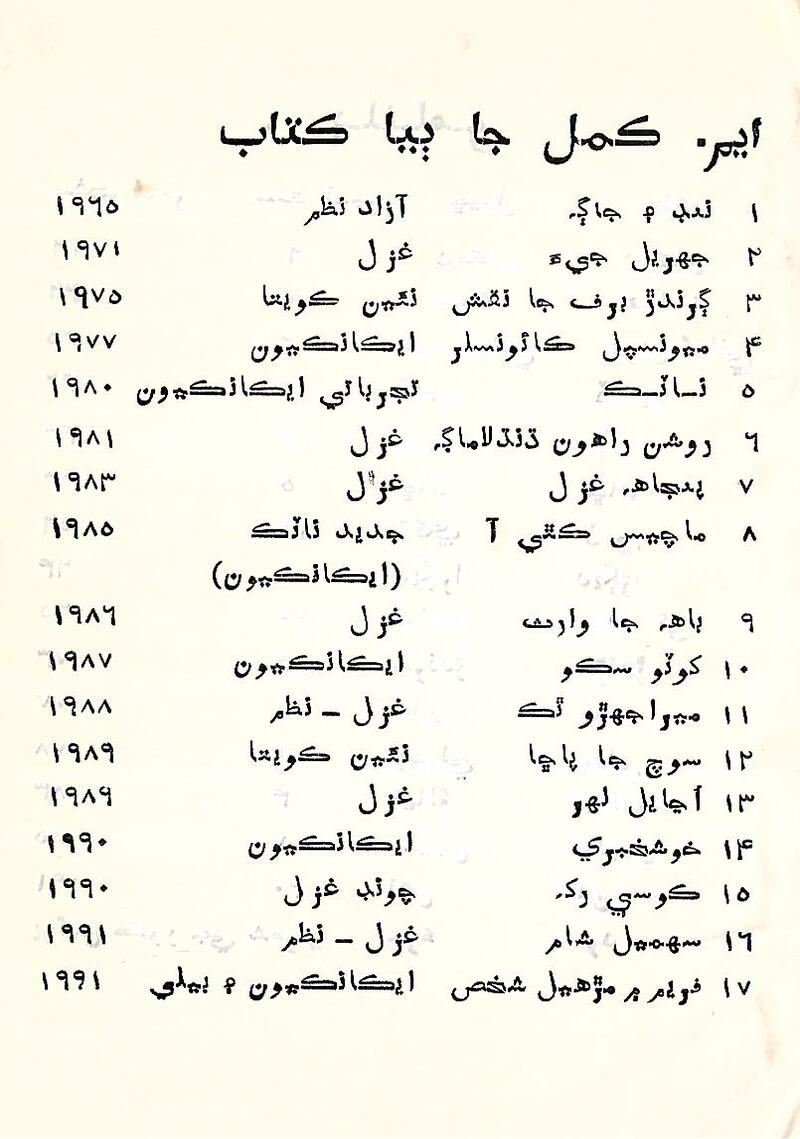 ايم. ڪمل جا ٻيا ڪتاب
١ ننڊ ۽ جاڳ. آزاد نظم ١٩٦٥
٢ جھريل جيءَ غزل ١٩٧١
٣ ڳرندڙ برف جا نقش نئين ڪويتا ١٩٧٥
۴ ميونسپل ڪائونسلر ايڪانڪيون ١٩٧٧
٥ نـاٽـڪ تجرباتي ايڪانڪيون ١٩٨٠
٦ روشن راھون ڌنڌلاماڳ. غزل ١٩٨١
٧ پنجاھ. غزل غزل ١٩٨٣
٨ ماچيس ڪٿي آ جديد ناٽڪ ١٩٨٥
(ايڪانڪيون)
٩ باھ. جا وارث غزل ١٩٨٦
١٠ کوٽو سڪو ايڪانڪيون ١٩٨٧
١١ ميراجھڙو ٿڪ غزل ــ نظم ١٩٨٨
١٢ سوچ جا پاڇا نئين ڪويتا ١٩٨٩
١٣ اڃايل لھر غزل ١٩٨٩
١۴ خوشخبري ايڪانڪيون ١٩٩٠
١٥ ڪوسي رک. چونڊ غزل ١٩٩٠
١٦ سھميل شام غزل ــ نظم ١٩٩١
١٧ فريم ۾ مڙھيل شخص ايڪانڪيون ۽ بيلي ١٩٩١